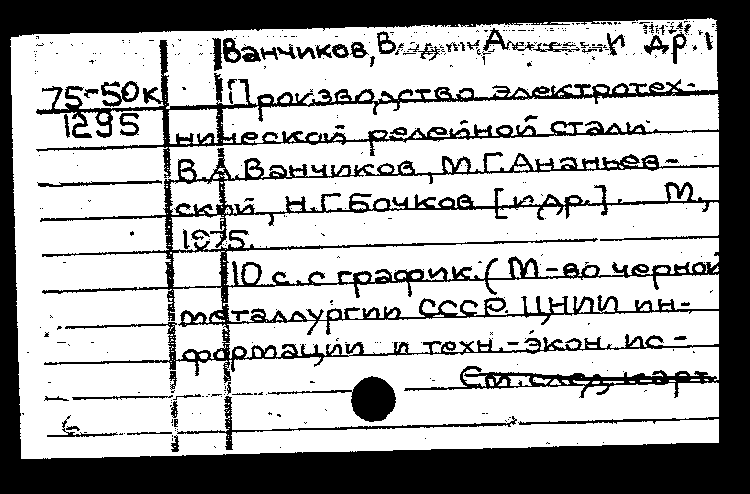 Ванчиков, Владим. Алексеевич и др.
75-50к Производство электротех-
1295 нической релейной стали.
В.А.Ванчиков, М.Г.Ананьев-
ский, Н.Г.Бочков [и др.]. М.,
1975.
10 с. с график. (М-во черной
металлургии СССР. ЦНИИ ин-
формации и техн.-экон. ис-
См. след. карт.
6